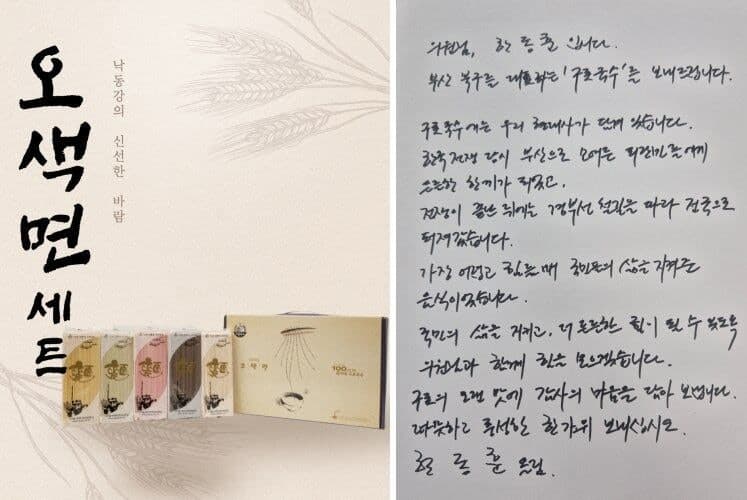 오색면세트
낙동강의 신선한 바람
오색면
100
의원님, 한동훈입니다.
부산 북구를 대표하는 '구포국수'를 보내드립니다.
구포국수에는 우리 현대사가 담겨 있습니다.
한국전쟁 당시 부산으로 모여든 피란민들에게
든든한 한끼가 되었고,
전쟁이 끝난 뒤에는 경부선 철길을 따라 전국으로
퍼져갔습니다.
가장 어렵고 힘들 때 국민들의 삶을 지켜준
음식이었습니다.
국민의 삶을 지키고, 더 든든한 힘이 될 수 있도록
의원님과 함께 힘을 모으겠습니다.
구포의 오랜 맛에 감사의 마음을 담아 보냅니다.
따뜻하고 풍성한 한가위 보내십시오.
한동훈 올림.